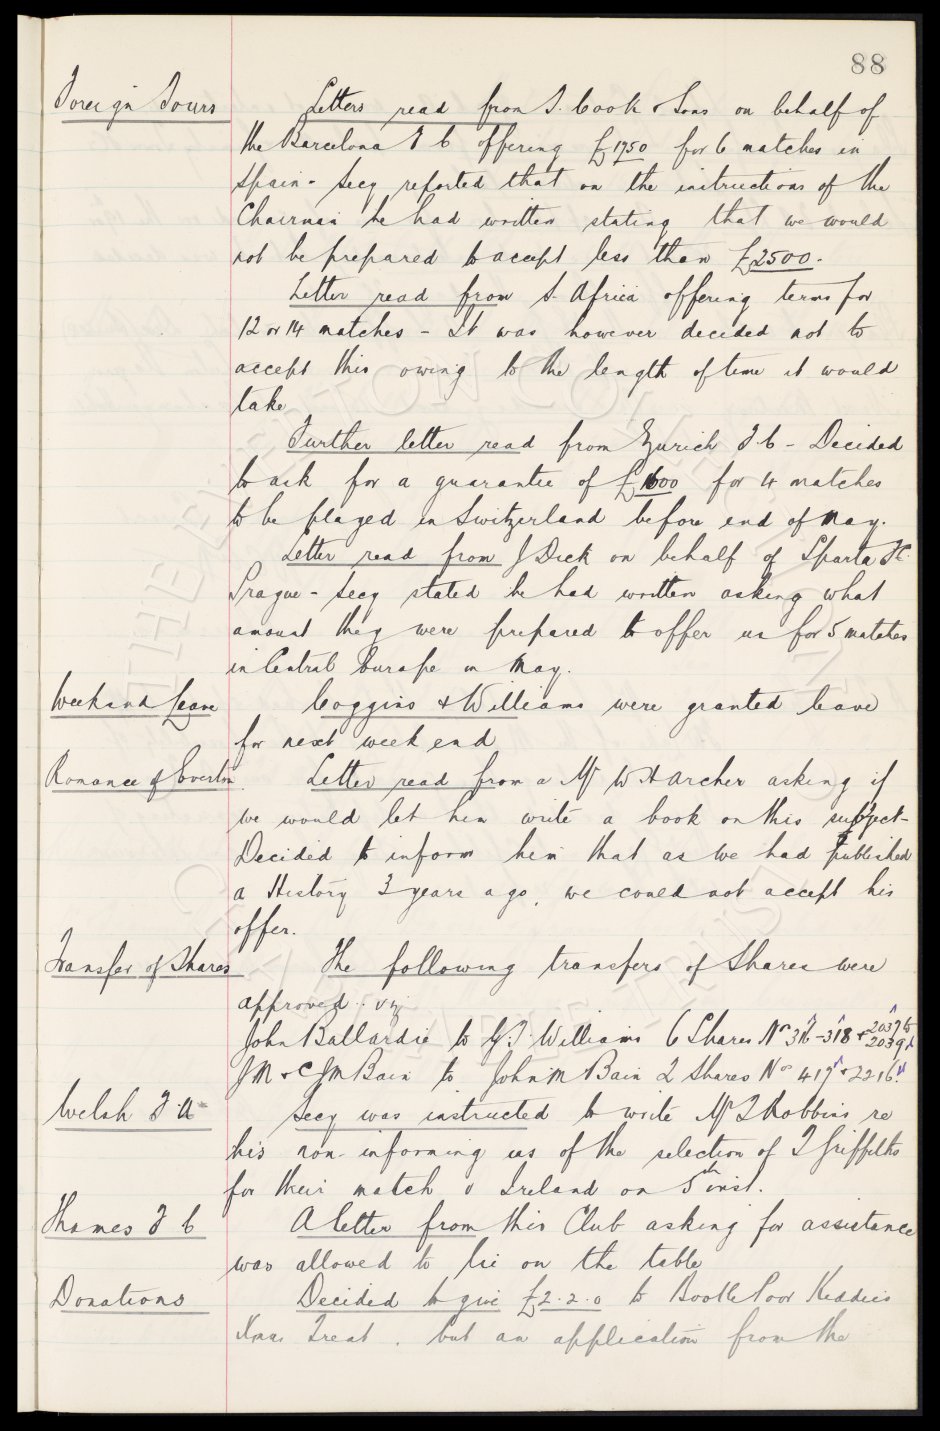 88
Foreign Tours
Letters read from T. Cook & Sons on behalf of
the Barcelona F C offering £1750 for 6 matches in
Spain - Secy reported that on the instructions of the
Chairman he had written stating that we would
not be prepared to accept less than £2500.
Letter read from S. Africa offering terms for
12 or 14 matches - It was however decided not to
accept this owing to the length of time it would
take
Further letter read from Zurich F.C - Decided
to ask for a guarantee of £1600 for 4 matches
to be played in Switzerland before end of May.
Letter read from J Dick on behalf of Sparta F.C.
Prague - Secy stated he had written asking what
amount they were prepared to offer us for 5 matches
in Central Europe in May.
Weekend Leave
Coggins & Williams were granted leave
for next week end
Romance of Everton.
Letter read from a Mr W H Archer asking if
we would let him write a book on this subject -
Decided to inform him that as we had published
a History 3 years ago, we could not accept his
offer.
Transfer of Shares
The following transfers of Shares were
approved. viz
John Ballardie to G.T. Williams 6 Shares Nos 316-318 & 2037 to 2039
J M & C J M Bain to John M Bain 2 Shares Nos 417 & 2216.
Welsh F.A
Secy was instructed to write Mr T Robbins re
his non-informing us of the selection of T Griffiths
for their match v Ireland on 5th inst.
Thames F C
A letter from this Club asking for assistance
was allowed to lie on the table
Donations
Decided to give £2.2.0 to Bootle Poor Kiddies
Xmas Treat. but an application from the